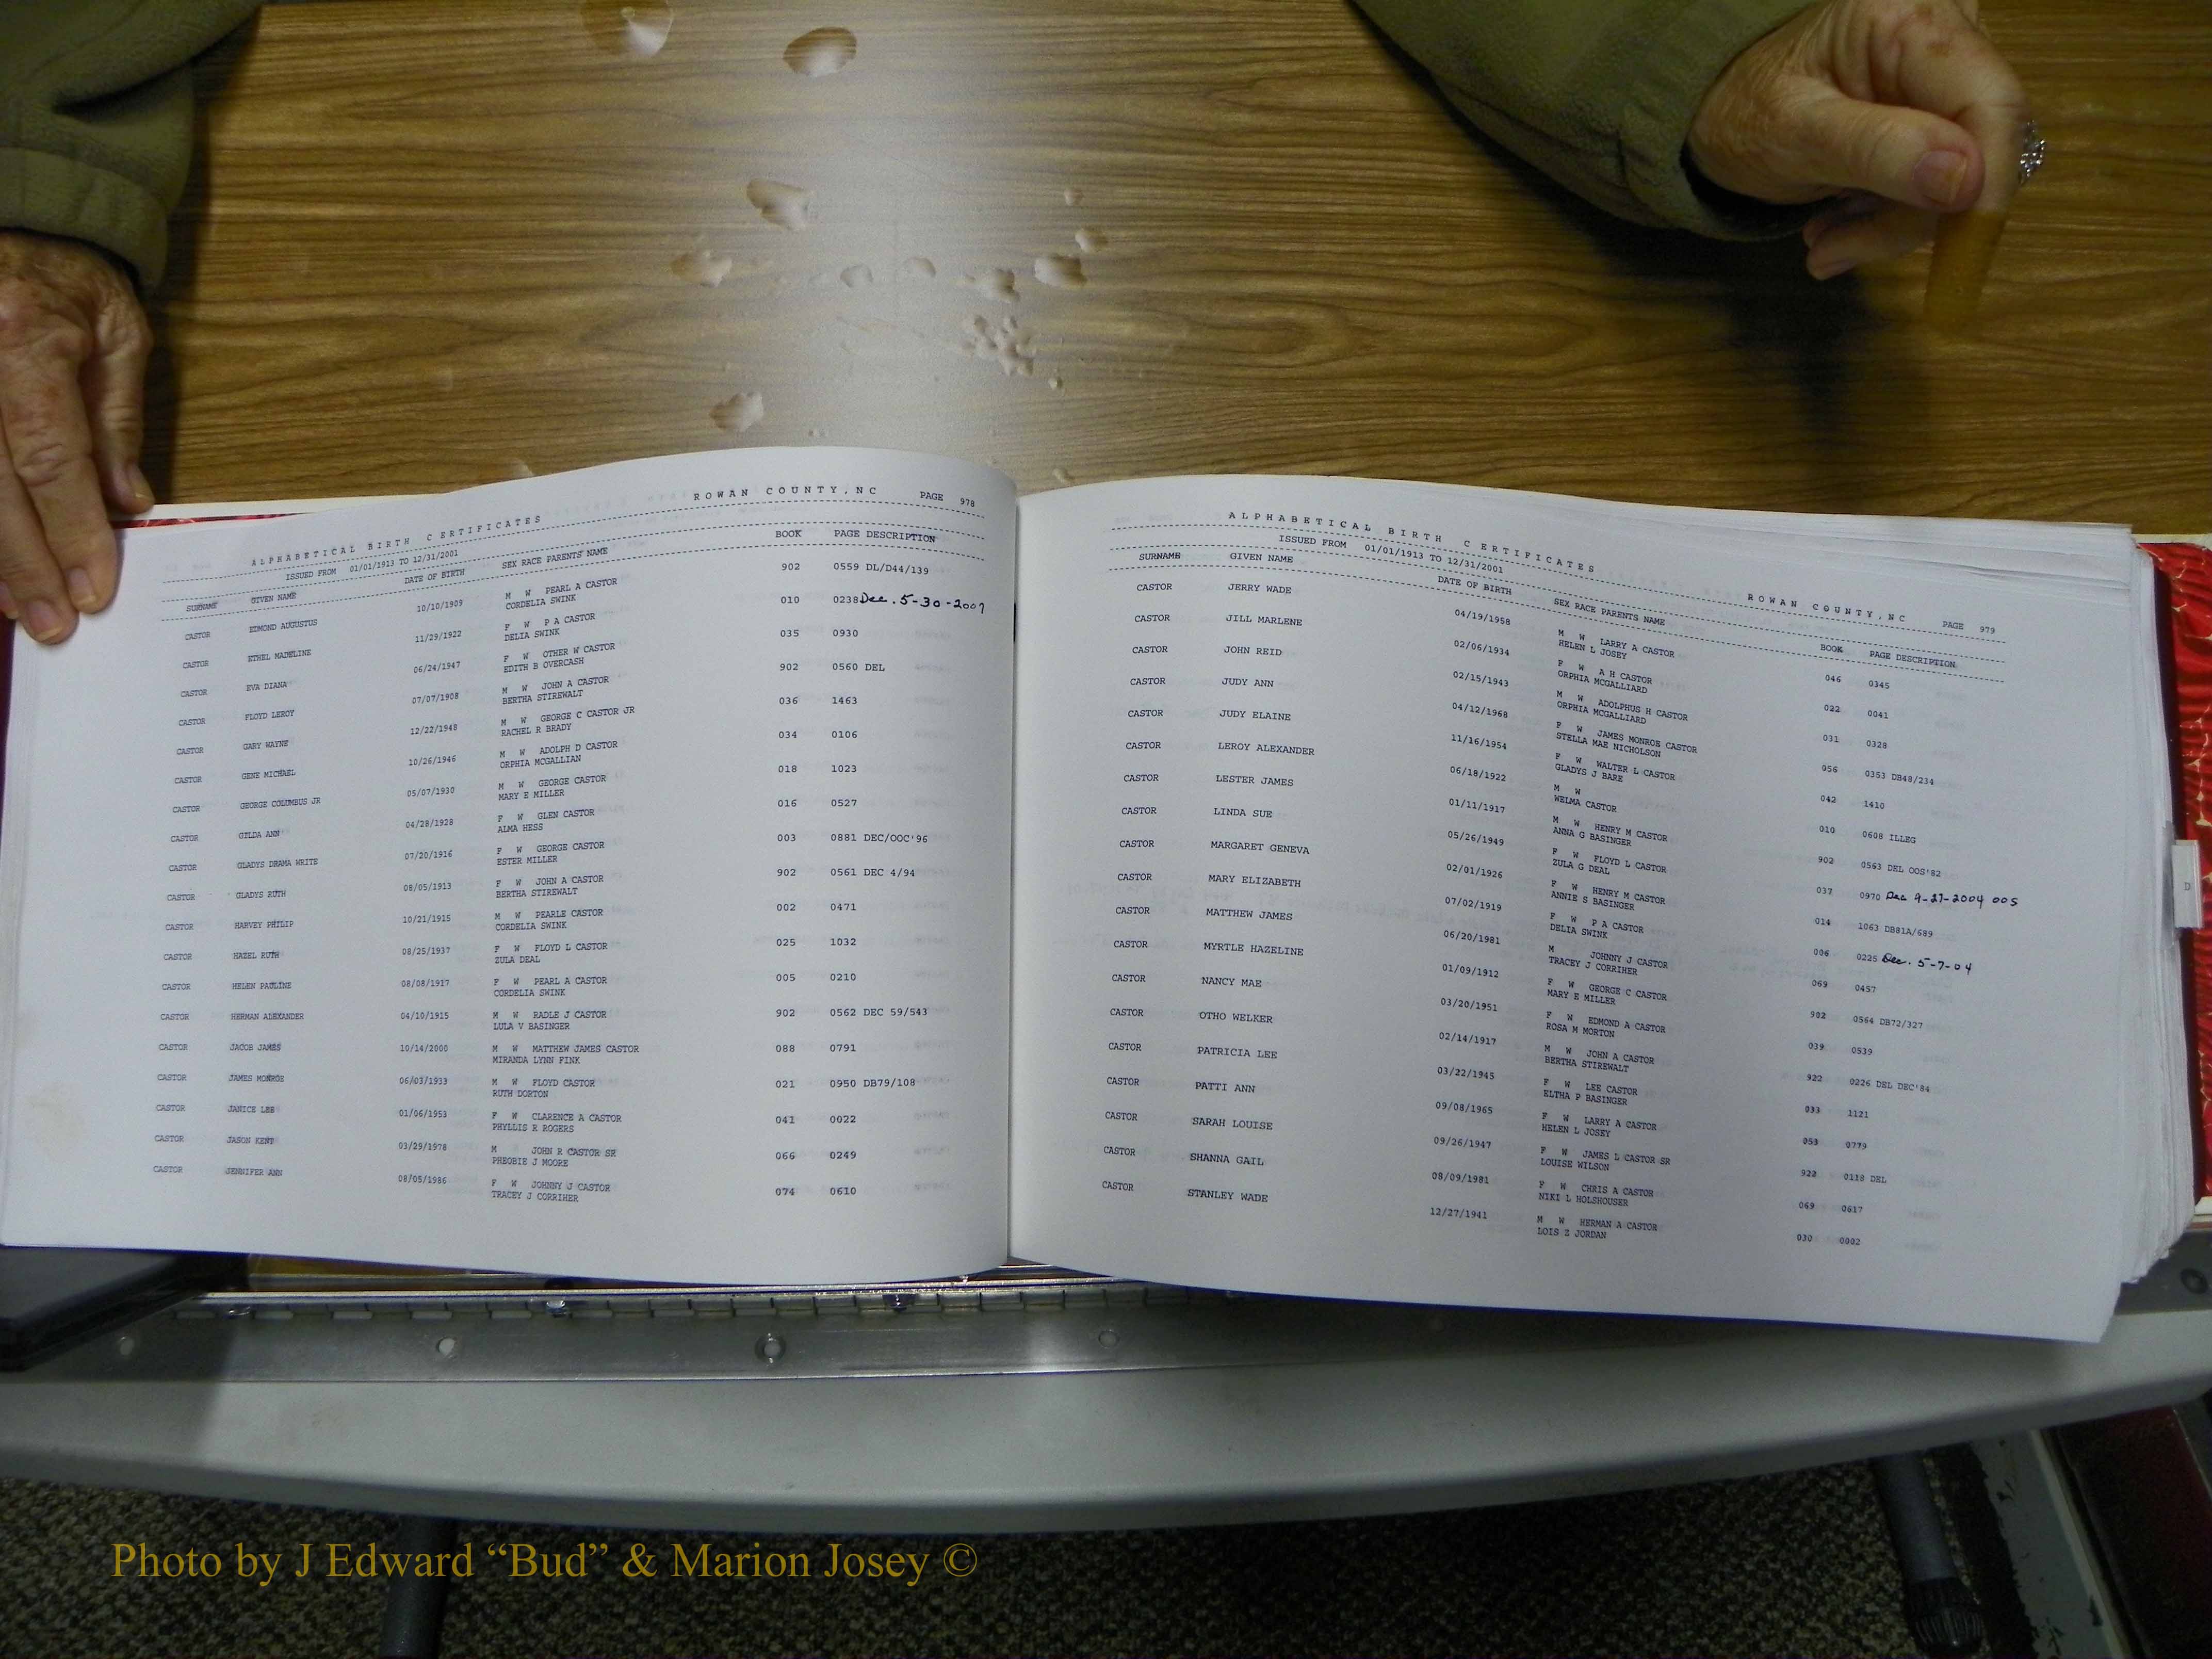 ALPHABETICAL BIRTH CERTIFICATES ROWAN COUNTY, NC PAGE 978
ISSUED FROM 01/01/1913 TO 12/31/2001
SURNAME GIVEN NAME DATE OF BIRTH SEX RACE PARENTS NAME BOOK PAGE DESCRIPTION
CASTOR EDMOND AUGUSTUS 10/10/1909 M W PEARL A CASTOR 902 0559 DL/D44/139
CORDELIA SWINK
CASTOR ETHEL MADELINE 11/29/1922 F W P A CASTOR 010 0238 Dec. 5-30-2007
DELIA SWINK
CASTOR EVA DIANA 06/24/1947 F W OTHER W CASTOR 035 0930
EDITH B OVERCASH
CASTOR FLOYD LEROY 07/07/1908 M W JOHN A CASTOR 902 0560 DEL
BERTHA STIREWALT
CASTOR GARY WAYNE 12/22/1948 M W GEORGE C CASTOR JR 036 1463
RACHEL R BRADY
CASTOR GENE MICHAEL 10/26/1946 M W ADOLPH D CASTOR 034 0106
ORPHIA MCGALLIAN
CASTOR GEORGE COLUMBUS JR 05/07/1930 M W GEORGE CASTOR 018 1023
MARY E MILLER
CASTOR GILDA ANN 04/28/1928 F W GLEN CASTOR 016 0527
ALMA HESS
CASTOR GLADYS DRAMA WRITE 07/20/1916 F W GEORGE CASTOR 003 0881 DEC/OOC'96
ESTER MILLER
CASTOR GLADYS RUTH 08/05/1913 F W JOHN A CASTOR 902 0561 DEC 4/94
BERTHA STIREWALT
CASTOR HARVEY PHILIP 10/21/1915 M W PEARLE CASTOR 002 0471
CORDELIA SWINK
CASTOR HAZEL RUTH 08/25/1937 F W FLOYD L CASTOR 025 1032
ZULA DEAL
CASTOR HELEN PAULINE 08/08/1917 F W PEARL A CASTOR 005 0210
CORDELIA SWINK
CASTOR HERMAN ALEXANDER 04/10/1915 M W RADLE J CASTOR 902 0562 DEC 59/543
LULA V BASINGER
CASTOR JACOB JAMES 10/14/2000 M W MATTHEW JAMES CASTOR 088 0791
MIRANDA LYNN FINK
CASTOR JAMES MONROE 06/03/1933 M W FLOYD CASTOR 021 0950 DB79/108
RUTH DORTON
CASTOR JANICE LEE 01/06/1953 F W CLARENCE A CASTOR 041 0022
PHYLLIS R ROGERS
CASTOR JASON KENT 03/29/1978 M JOHN R CASTOR SR 066 0249
PHEOBIE J MOORE
CASTOR JENNIFER ANN 08/05/1986 F W JOHNNY J CASTOR 074 0610
TRACEY J CORRIHER
ALPHABETICAL BIRTH CERTIFICATES ROWAN COUNTY, NC PAGE 979
ISSUED FROM 01/01/1913 TO 12/31/2001
SURNAME GIVEN NAME DATE OF BIRTH SEX RACE PARENTS NAME BOOK PAGE DESCRIPTION
CASTOR JERRY WADE 04/19/1958 M W LARRY A CASTOR 046 0345
HELEN L JOSEY
CASTOR JILL MARLENE 02/06/1934 F W A H CASTOR 022 0041
ORPHIA MCGALLIARD
CASTOR JOHN REID 02/15/1943 M W ADOLPHUS H CASTOR 031 0328
ORPHIA MCGALLIARD
CASTOR JUDY ANN 04/12/1968 F W JAMES MONROE CASTOR 056 0353 DB48/234
STELLA MAE NICHOLSON
CASTOR JUDY ELAINE 11/16/1954 F W WALTER L CASTOR 042 1410
GLADYS J BARE
CASTOR LEROY ALEXANDER 06/18/1922 M W 010 0608 ILLEG
WELMA CASTOR
CASTOR LESTER JAMES 01/11/1917 M W HENRY M CASTOR 902 0563 DEL OOS'82
ANNA G BASINGER
CASTOR LINDA SUE 05/26/1949 F W FLOYD L CASTOR 037 0970 Dec 9-27-2004 005
ZULA G DEAL
CASTOR MARGARET GENEVA 02/01/1926 F W HENRY M CASTOR 014 1063 DB81A/689
ANNIE S BASINGER
CASTOR MARY ELIZABETH 07/02/1919 F W P A CASTOR 006 0225 Dec. 5-7-04
DELIA SWINK
CASTOR MATTHEW JAMES 06/20/1981 M JOHNNY J CASTOR 069 0457
TRACEY J CORRIHER
CASTOR MYRTLE HAZELINE 01/09/1912 F W GEORGE C CASTOR 902 0564 DB72/327
MARY E MILLER
CASTOR NANCY MAE 03/20/1951 F W EDMOND A CASTOR 039 0539
ROSA M MORTON
CASTOR OTHO WELKER 02/14/1917 M W JOHN A CASTOR 922 0226 DEL DEC'84
BERTHA STIREWALT
CASTOR PATRICIA LEE 03/22/1945 F W LEE CASTOR 033 1121
ELTHA P BASINGER
CASTOR PATTI ANN 09/08/1965 F W LARRY A CASTOR 053 0779
HELEN L JOSEY
CASTOR SARAH LOUISE 09/26/1947 F W JAMES L CASTOR SR 922 0118 DEL
LOUISE WILSON
CASTOR SHANNA GAIL 08/09/1981 F W CHRIS A CASTOR 069 0617
NIKI L HOLSHOUSER
CASTOR STANLEY WADE 12/27/1941 M W HERMAN A CASTOR 030 0002
LOIS Z JORDAN
D
Photo by J Edward “Bud” & Marion Josey ©